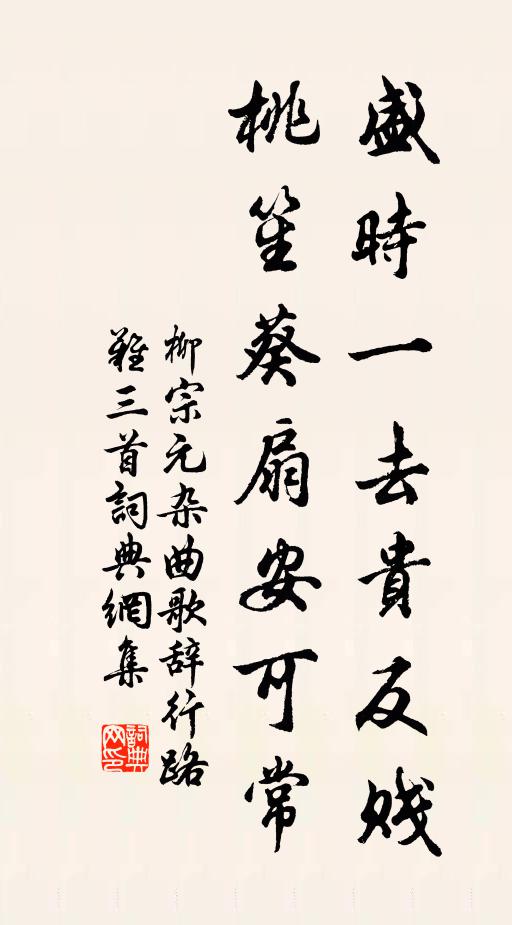 盛時一去貴反贱
桃笙葵扇安可常
柳宗元杂曲歌辞行路
難三首詞典網集
詞典網印